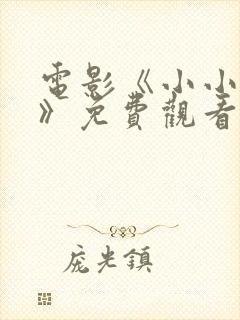 電影《小小
》免費觀看
庞光鎮